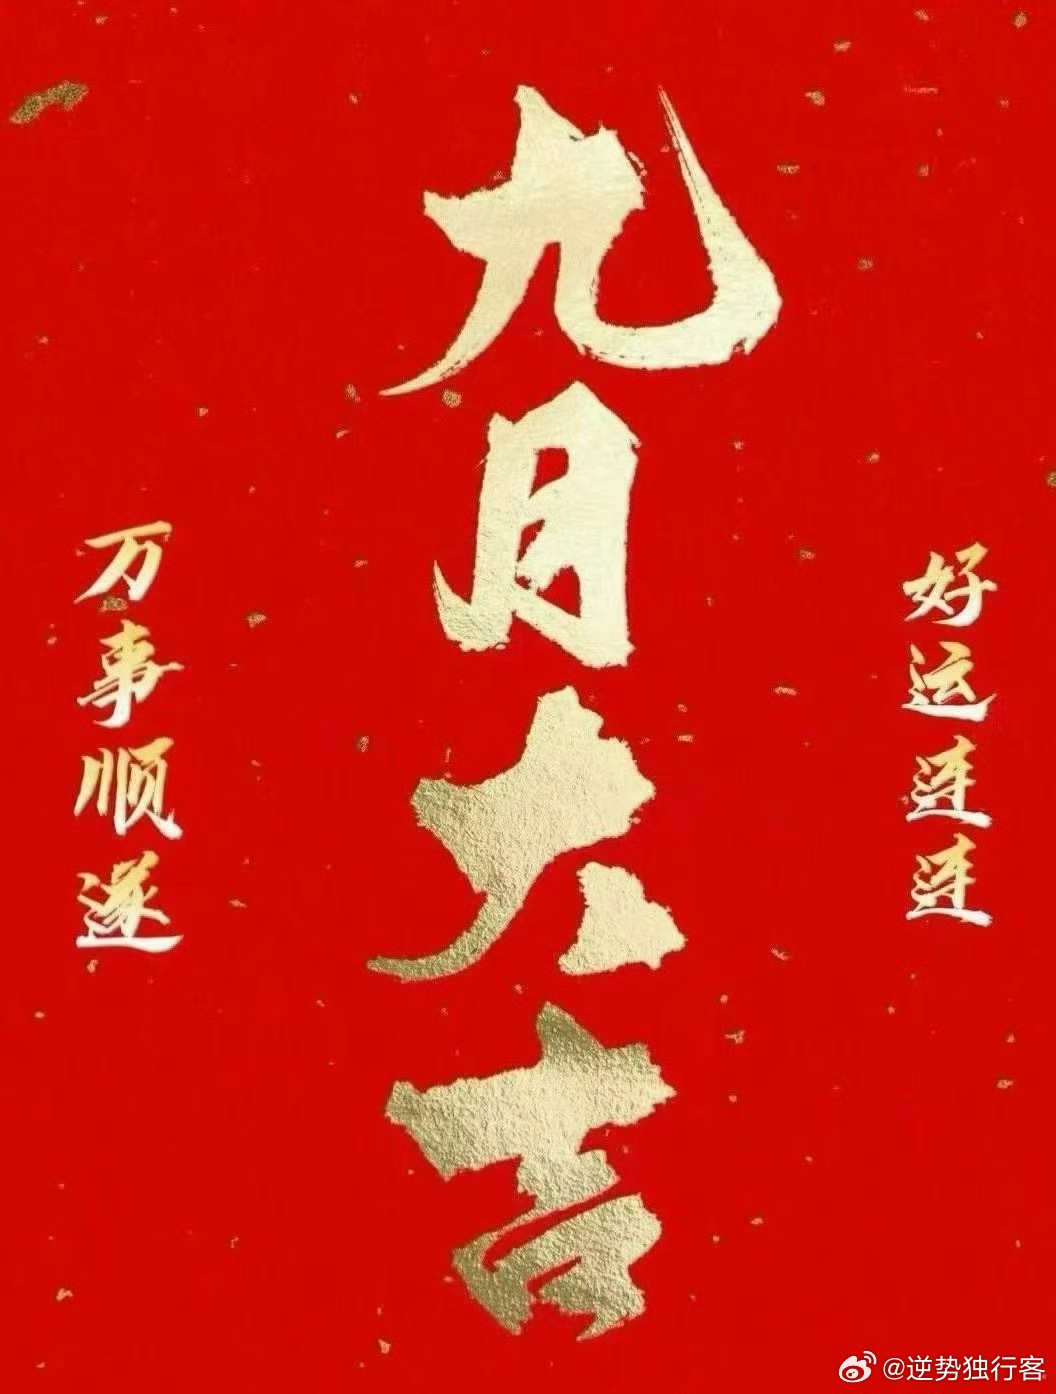 九月大吉
好运连连
万事顺遂
@逆势独行客